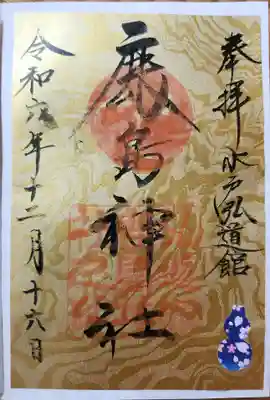 奉拝 水戸弘道館
鹿島神社
令和六年十二月十六日